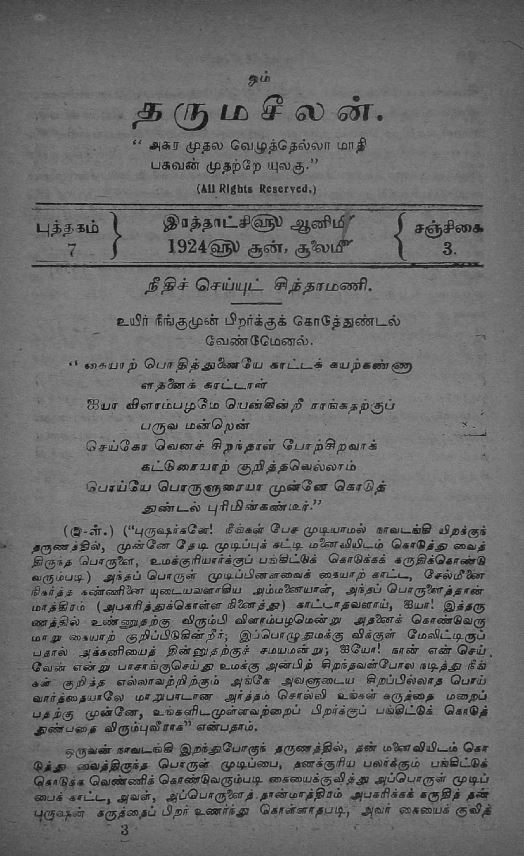 ஓம்
தருமசீலன்.
“ அகர முதல வெழுத்தெல்லா மாதி
பகவன் முதற்றே யுலகு.”
(All Rights Reserved,)
புத்தகம் 7
இரத்தாட்சி௵ ஆனிமீ
1924௵ சூன், சூலைமீ
சஞ்சிகை 3.
நீதிச் செய்யுட் சிந்தாமணி.
உயிர் நீங்குமுன் பிறர்க்குக் கொடுத்துண்டல்
வேண்டுமேனல்.
“ கையாற் பொதித்துணையே காட்டக் கயற்கண்ணா
ளதனைக் காட்டாள்
ஐயா விளாம்பழமே யென்கின்றீ ராங்கதற்குப்
பருவ மன்றென்
செய்கோ வெனச் சிறந்தாள் போற்சிறவாக்
கட்டுரையாற் குறித்தவெல்லாம்
பொய்யே பொருளுரையா முன்னே கொடுத்
துண்டல் புரிமின்கண்டீர்.”
(இ-ள்.) (“புருஷர்களே! நீங்கள் பேச முடியாமல் நாவடங்கி யிறக்குந்
தருணத்தில், முன்னே தேடி முடிப்புக் கட்டி மனைவியிடம் கொடுத்து வைத்
திருந்த பொருளை, உமக்குரியார்க்குப் பங்கிட்டுக் கொடுக்கக் கருதிக்கொண்டு
வரும்படி) அந்தப் பொருள் முடிப்பினளவைக் கையாற் காட்ட, சேல்மீனை
நிகர்த்த கண்ணினை யுடையவளாகிய அம்மனையாள், அந்தப் பொருளைத்தான்
மாத்திரம் (அபகரித்துக்கொள்ள நினைத்து) காட்டாதவளாய், ஐயா! இத்தரு
ணத்தில் உண்ணுதற்கு விரும்பி விளாம்பழமென்று அதனைக் கொண்டுவரு
மாறு கையாற் குறிப்பிடுகின்றீர்; இப்பொழுதுமக்கு விக்குள் மேலிட்டிருப்
பதால் அக்கனியைத் தின்னுதற்குச் சமயமன்று; ஐயோ! நான் என் செய்
வேன் என்று பாசாங்குசெய்து உமக்கு அன்பிற் சிறந்தவள்போல நடித்து நீங்
கள் குறித்த எல்லாவற்றிற்கும் அங்கே அவளுடைய சிறப்பில்லாத பொய்
வார்த்தையாலே மாறுபாடான அர்த்தம் சொல்லி உங்கள் கருத்தை மறைப்
பதற்கு முன்னே, உங்களிடமுள்ளவற்றைப் பிறர்க்குப் பங்கிட்டுக் கொடுத்
துண்பதை விரும்புவீராக” என்பதாம்.
ஒருவன் நாவடங்கி இறந்துபோகுந் தருணத்தில், தன் மனைவியிடம் கொ
டுத்து வைத்திருந்த பொருள் முடிப்பை, தனக்குரிய பலர்க்கும் பங்கிட்டுக்
கொடுக்க வெண்ணிக் கொண்டுவரும்படி கையைக்குவித்து அப்பொருள் முடிப்
பைக் காட்ட, அவள், அப்பொருளைத் தான்மாத்திரம் அபகரிக்கக் கருதித் தன்
புருஷன் கருத்தைப் பிறர் உணர்ந்து கொள்ளாதபடி, அவர் கையைக் குவித்
3